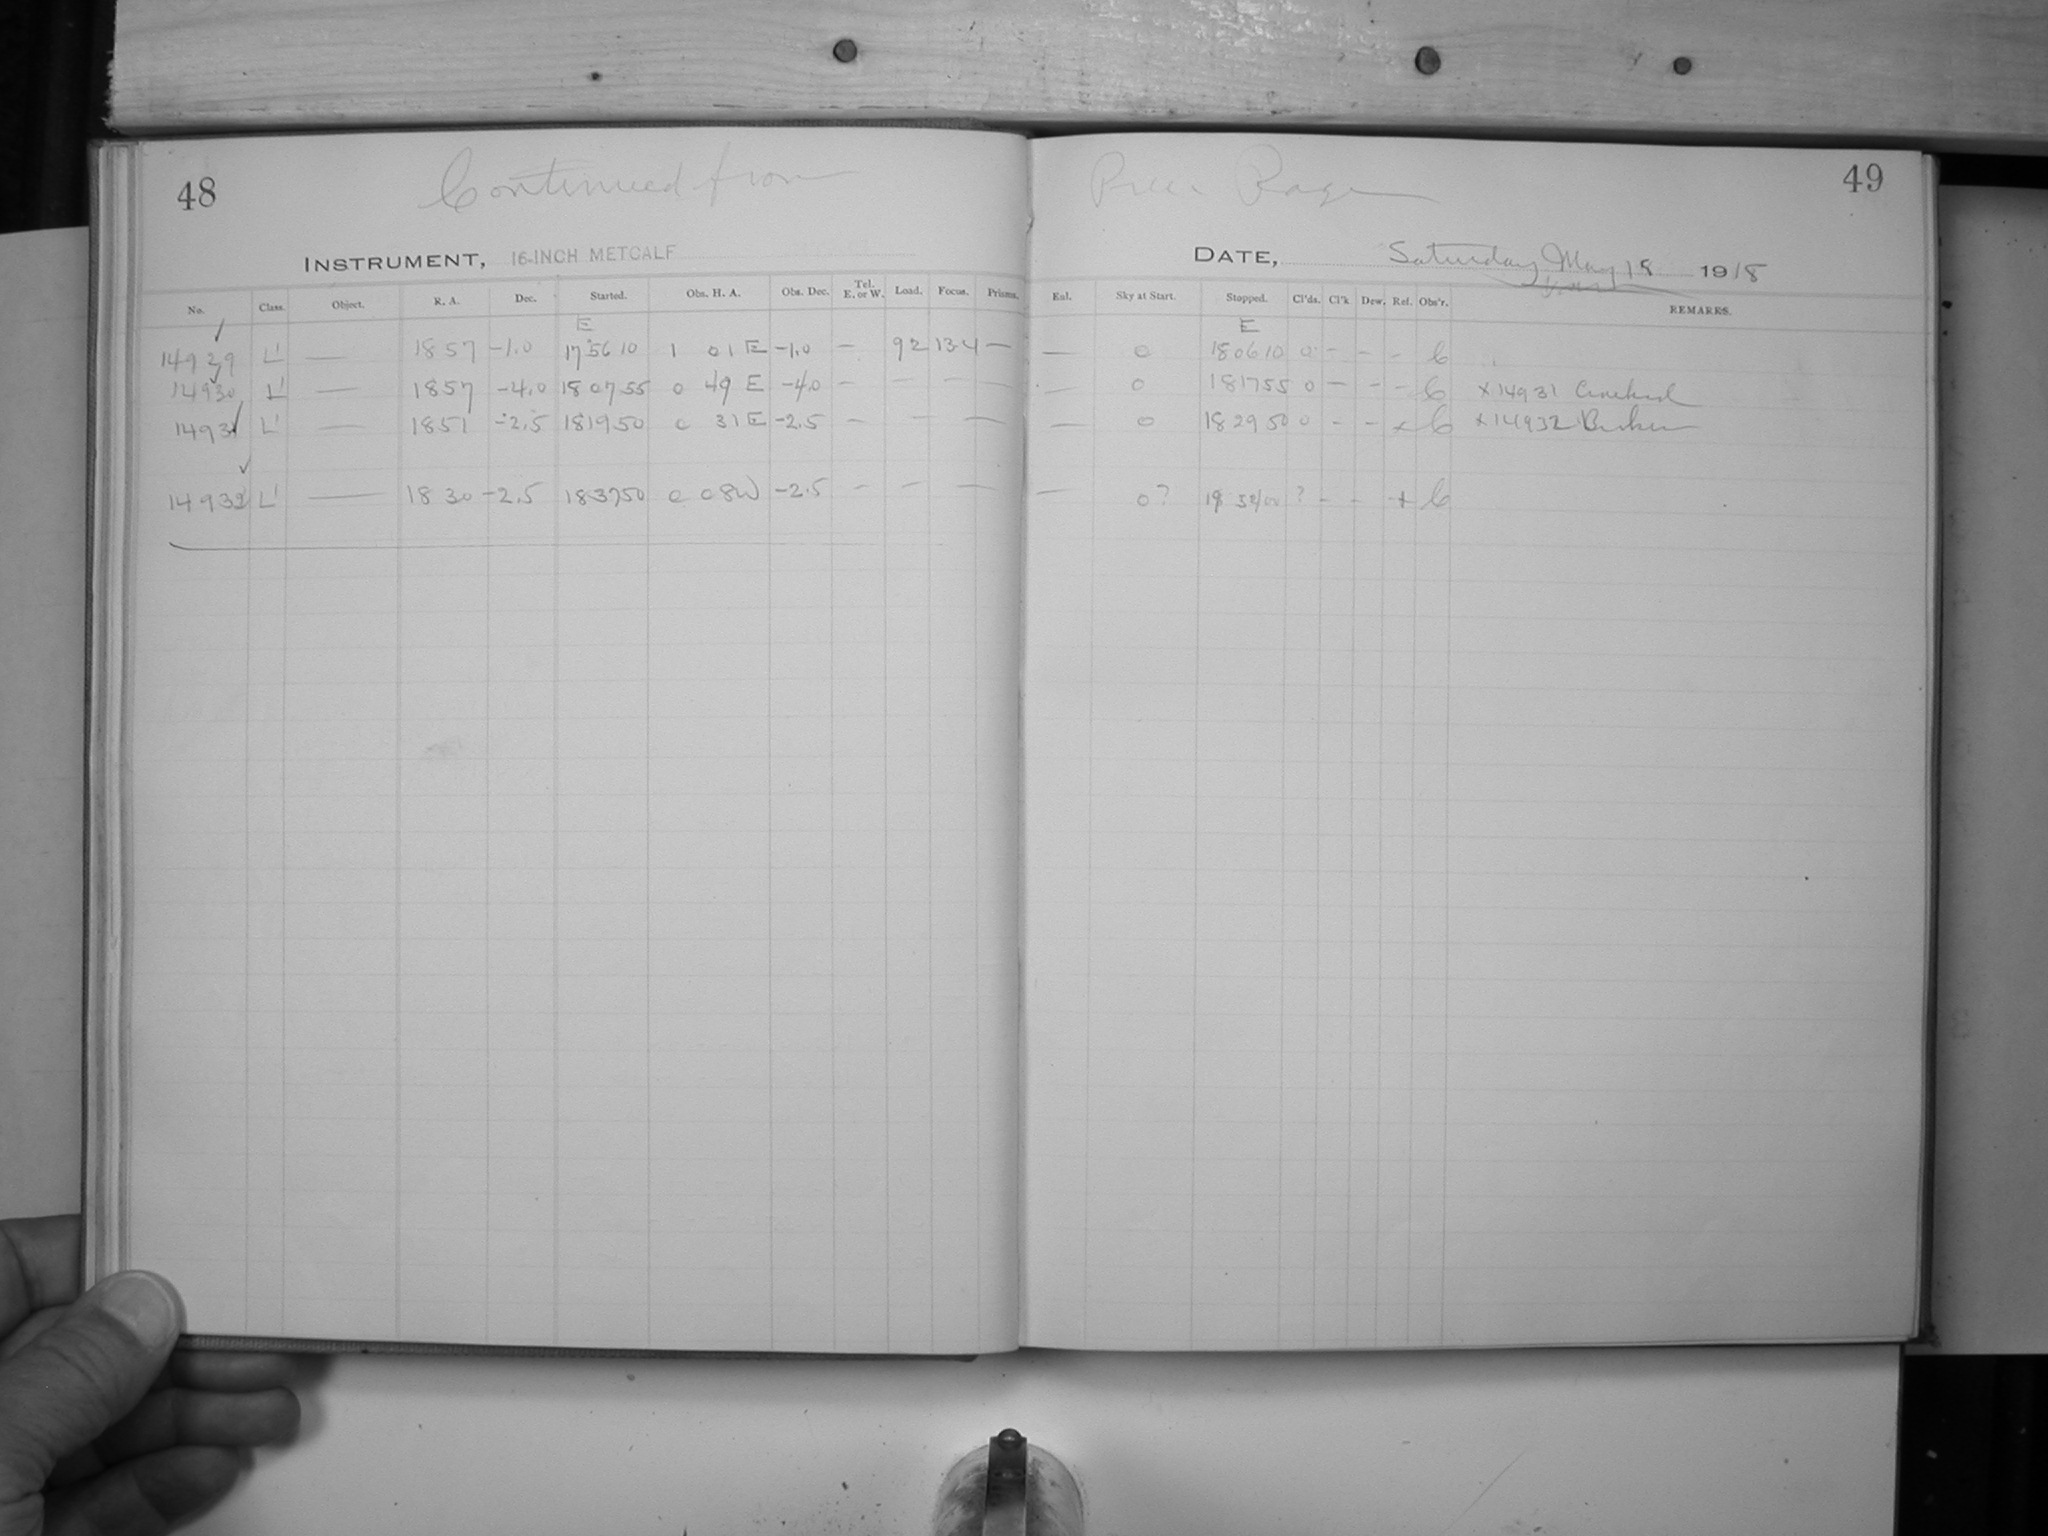 48
Continued from
Prev. Page
49
INSTRUMENT, 16-INCH METCALF
DATE, Saturday May 18 1918
No. Class. Object. R. A. Dec. Started. Obs. H. A. Obs. Dec. Tel. E. or W. Load. Focus. Prisms. Eul. Sky at Start. Stopped. Cl'ds. Cl'k Dew. Ref. Obs'r. REMARKS.
E E
14929 L' — 18 57 -1.0 17 56 10 1 01 E -1.0 — 92 13.4 — — 0 18 06 10 0 - - - C
14930 L' — 1857 -4.0 18 07 55 0 49 E -4.0 - - - - — 0 18 17 55 0 - - - C x 14931
14931 L' — 1851 -2.5 18 19 50 0 31 E -2.5 — — — 0 18 29 50 0 - - x C x 14932 Broken
14932 L' — 18 30 -2.5 18 37 50 0 08 W -2.5 - - — — — 0? ? - - + C